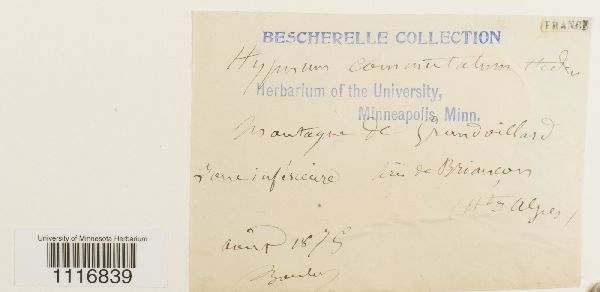 FRANCE
BESCHERELLE COLLECTION
Hypnum commutatum Hedw
Herbarium of the University,
Minneapolis, Minn.
Montagne de Grandvillard
Zone inférieure près de Briançon
(Htes Alpes)
août 187
University of Minnesota Herbarium
1116839